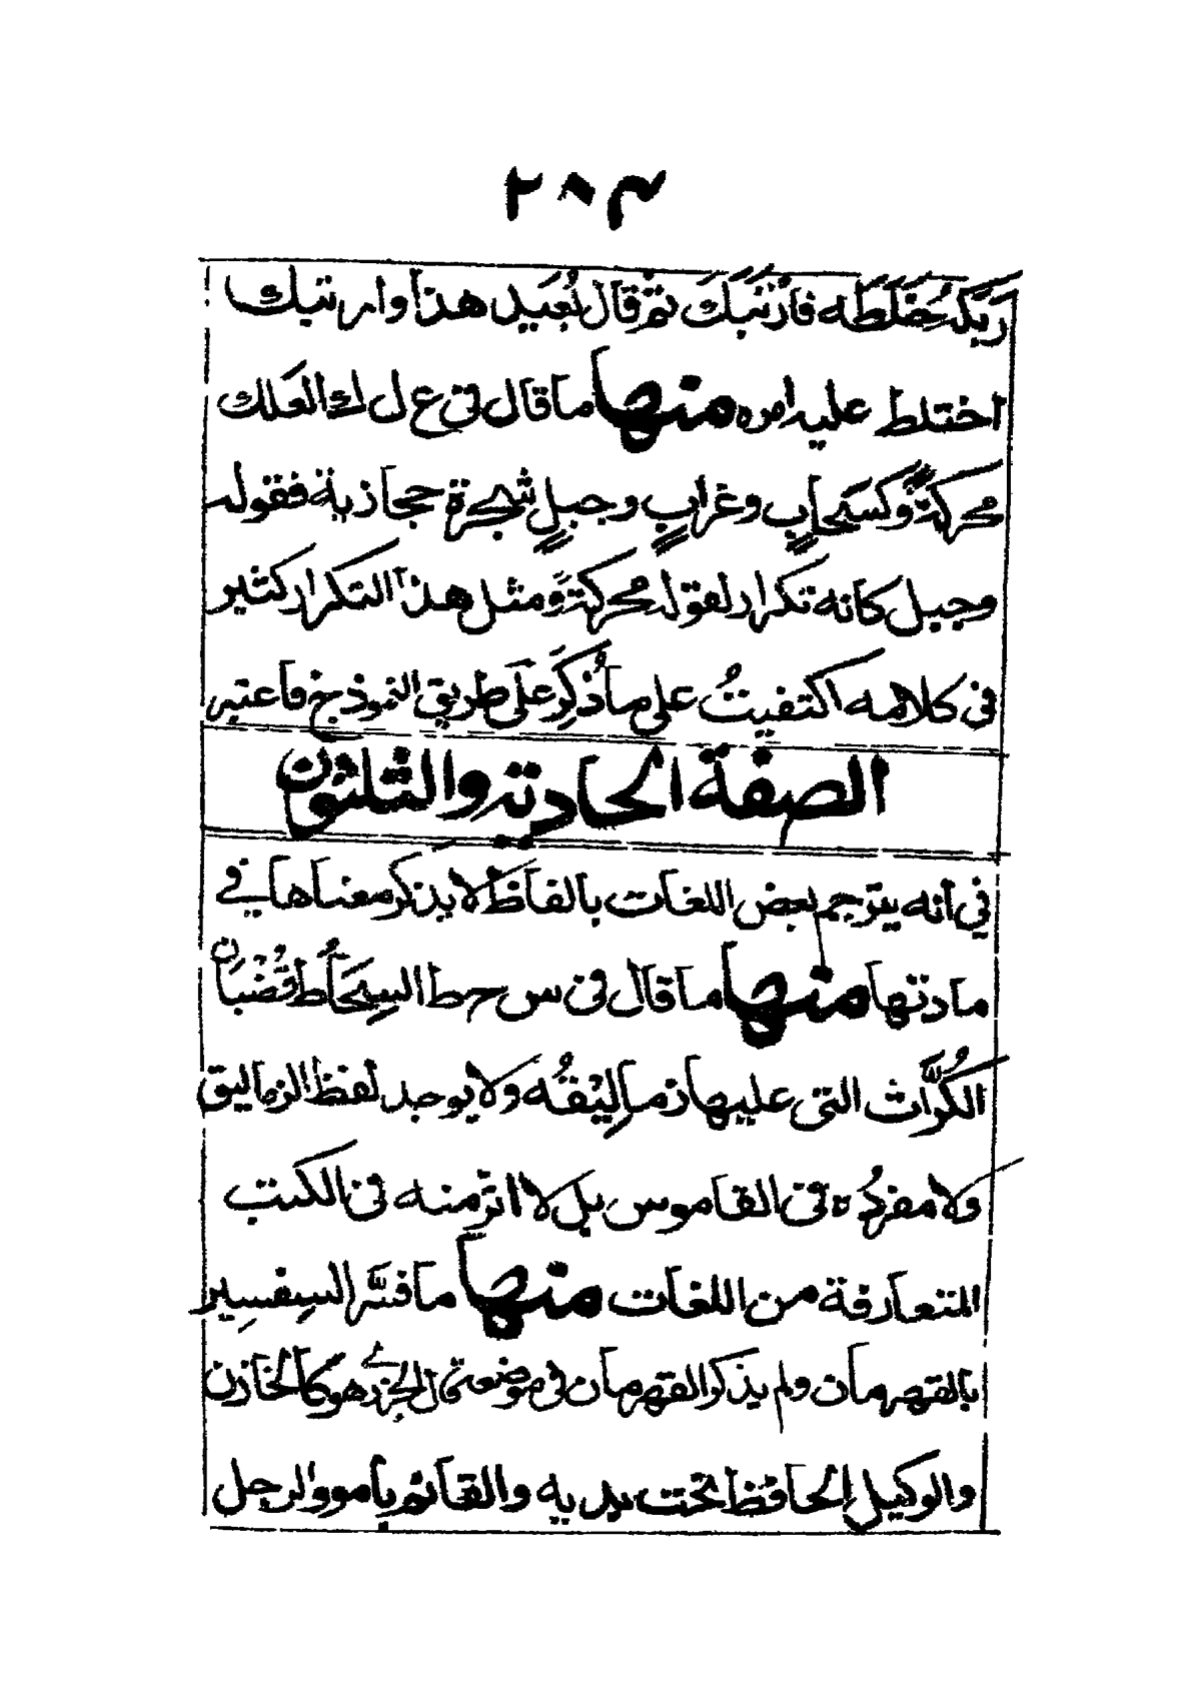 ٢٠٣
رَبَكَهُ خَلَطَه فَارْتَبَكَ ثم قال بُعَيد هذا وارتبك
اختلط عليه امره منها ما قال فى ع ل ك العَلَك
محركةً وكسَحابٍ وغرابٍ وجبلٍ شجرة حجازية فقوله
وجبل كانه تكرار لقوله محركة ومثل هذا التكرار كثير
فى كلامه اكتفيتُ على ما ذُكِرَ على طريق النموذج فاعتبر
الصفة الحادية والثلثون
في انه يترجم بعض اللغات بالفاظ لا يذكر معناها في
مادتها منها ما قال فى س ح ط السِحَاط قُضْبَان
الكُرَّاث التى عليها زمالِيْقُه ولا يوجد لفظ الزماليق
ولا مفردُه فى القاموس بل لا اثر منه فى الكتب
المتعارفة من اللغات منها ما فسَّر السِفسِير
بالقهرمان ولم يذكر القهرمان فى موضعه قال الجزرى هو كالخازن
والوكيل الحافظ تحت يديه والقائم بامور الرجل